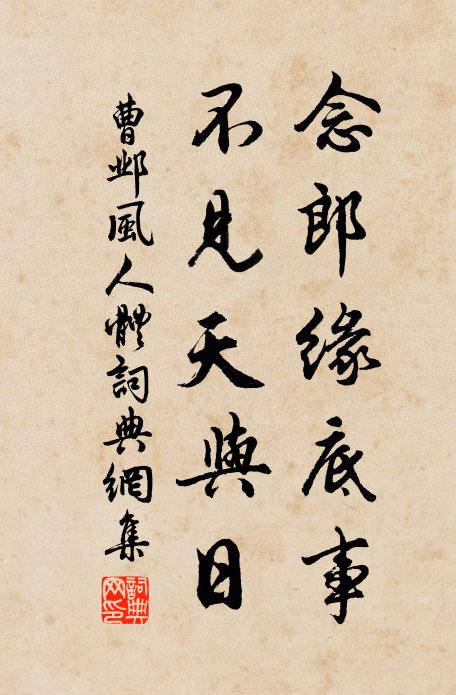 念郎緣底事
不見天與日
曹鄴風人體詞典網集
詞典網印